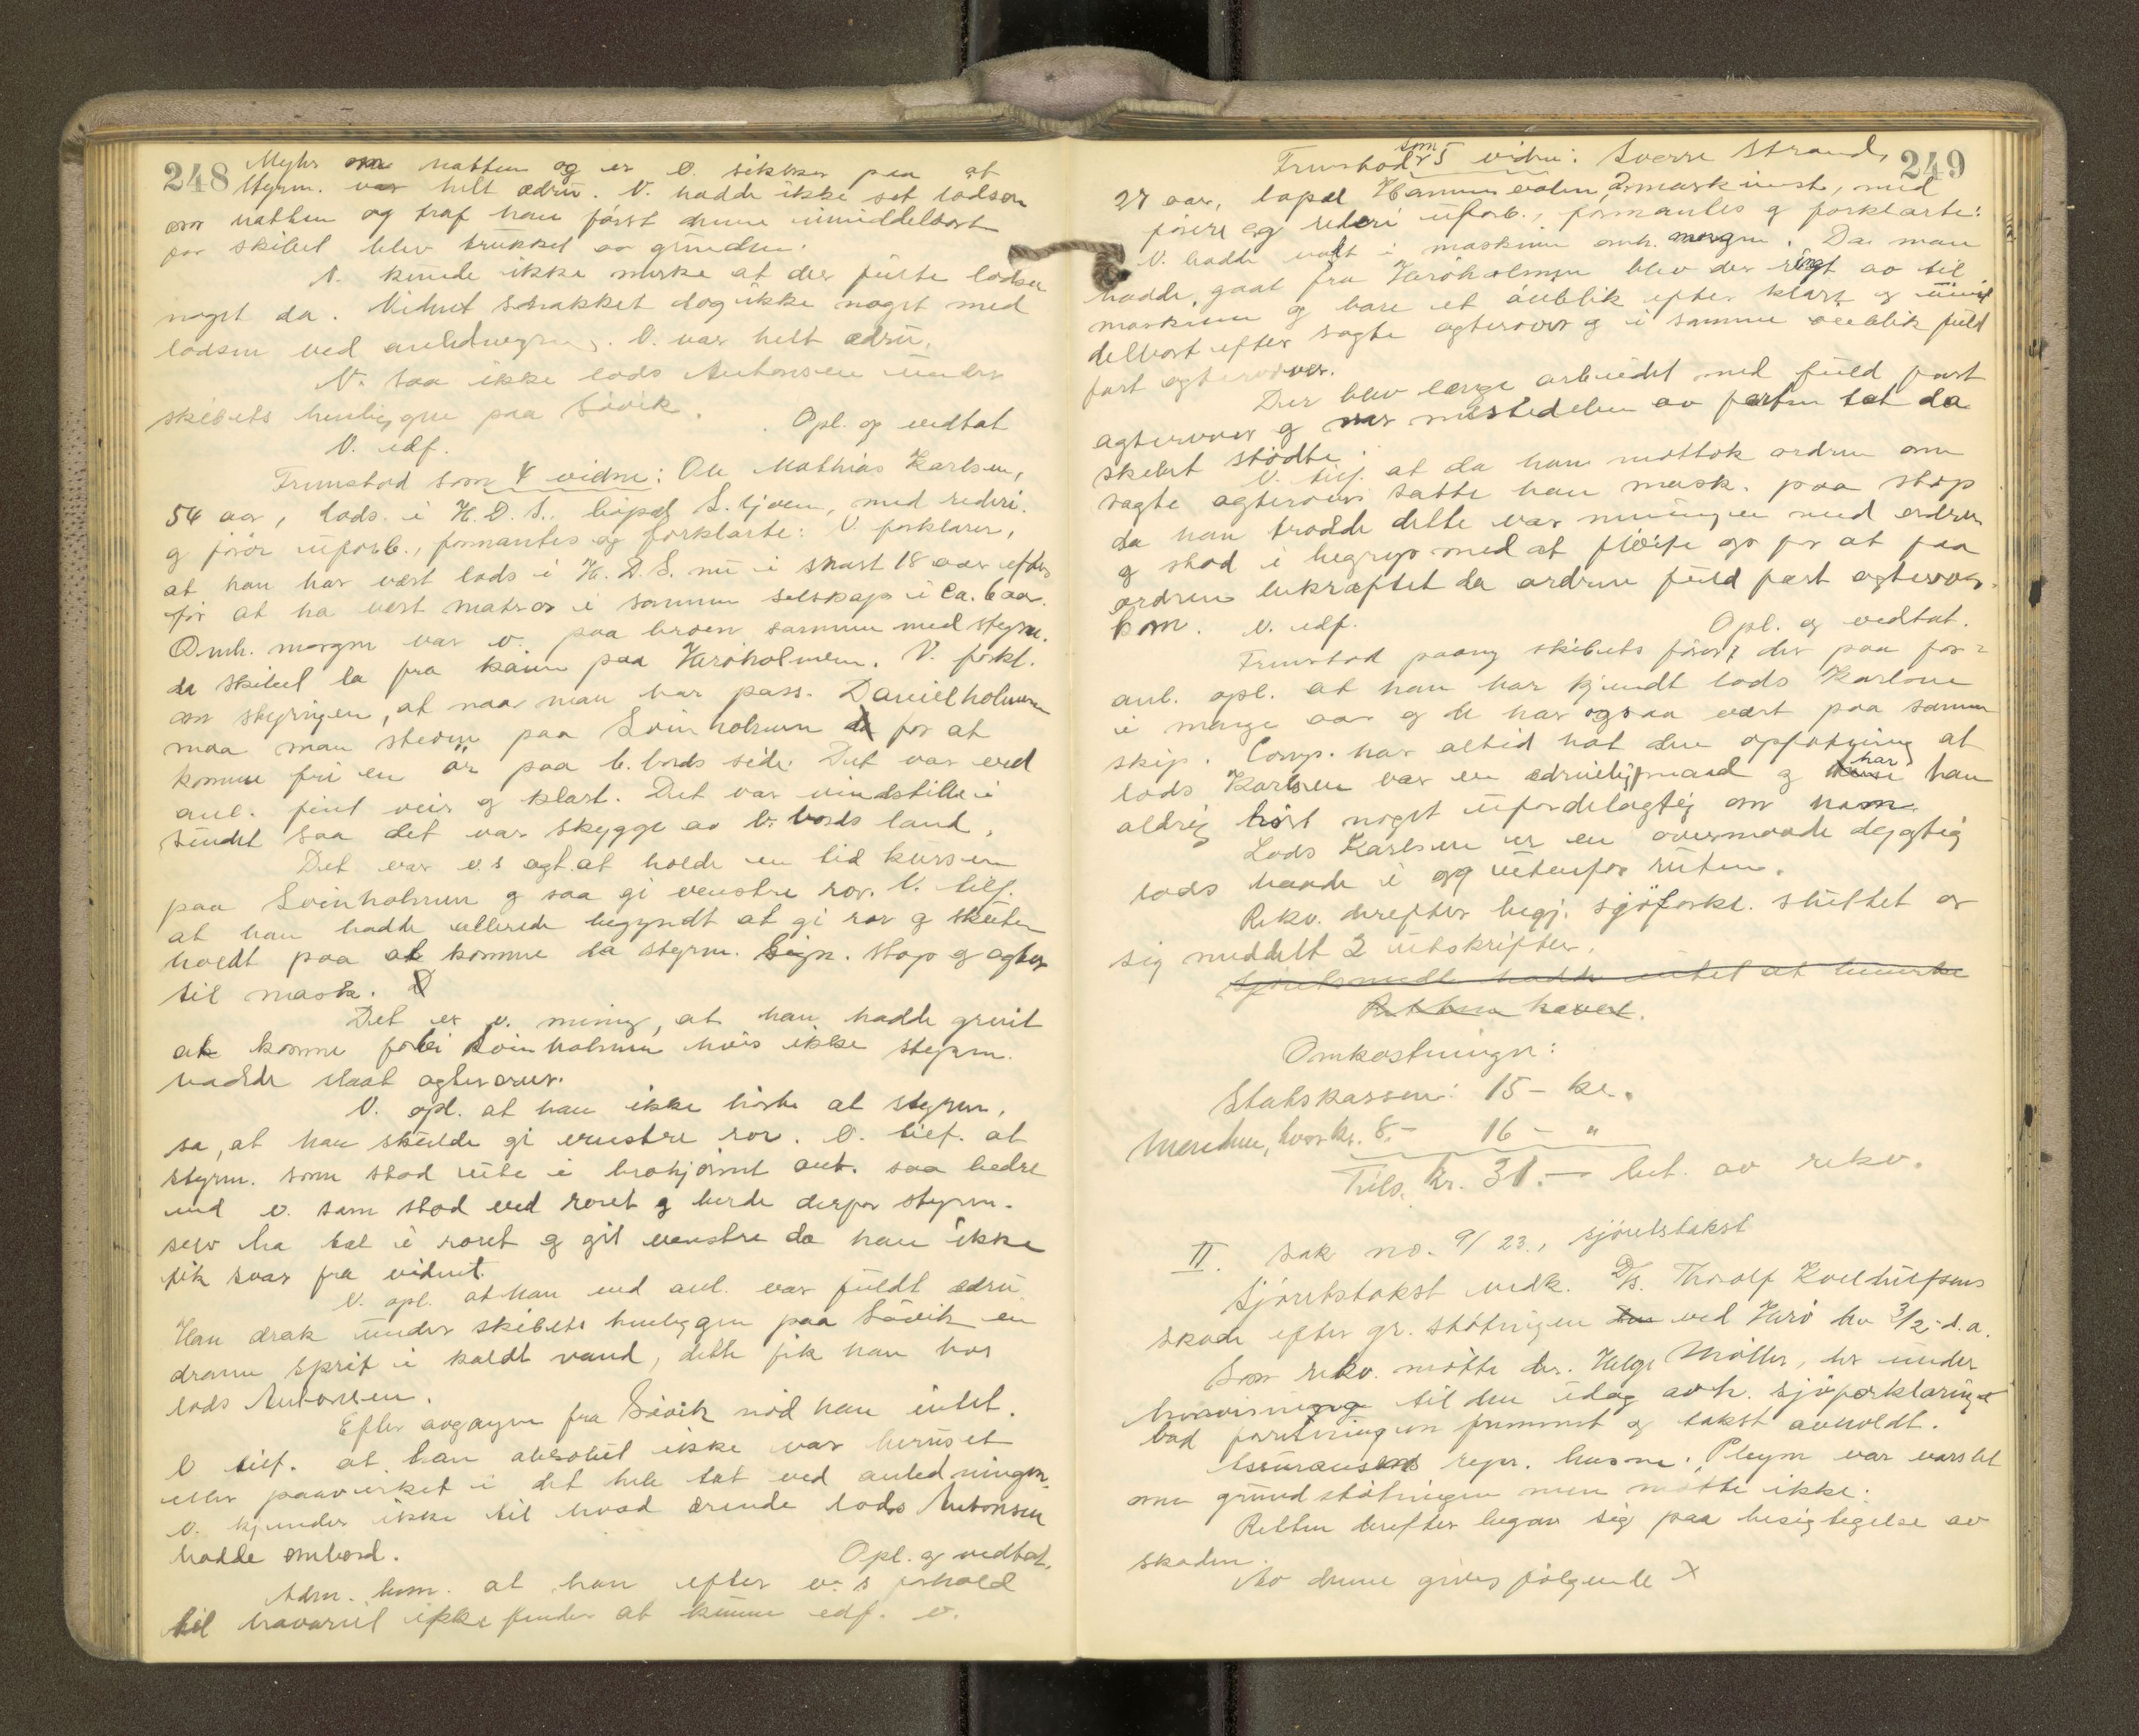 248
Myhr om natten og er v. sikker paa at
styrm. var helt ædru. V. hadde ikke set lodsen
om natten og traf han først denne umiddelbart
før skibet blev trukket av grunden.
V. kunde ikke merke at der feilte lodsen
noget da. Vidnet snakket dog ikke noget med
lodsen ved anledningen. V. var helt ædru.
V. saa ikke lods Antonsen under
skibets henliggen paa Søvik.
Opl. og vedtat
V. edf.
Fremstod som 4 vidne: Ole Mathias Karlsen,
54 aar, lods i H.D.S. bopæl S. , med rederi
g fører uforb., formantes og forklarte: V. forklarer,
at han har vært lods i H.D.S. nu i snart 18 aar efter
før at ha vært matros i samme selskap i ca. 6 aar.
Omh. morgen var v. paa broen sammen med styrm.
da skibet la fra kaien paa Harøholmen. V. forkl.
om styringen, at naar man har pass. Danielholmen
maa man stevne paa Svinholmen da for at
komme fri en ør paa b.bords side. Det var ved
anl. fint veir g klart. Det var vindstille i
sundet saa det var skygge av b.bords land.
Det var v.s agt. at holde en tid kursen
paa Svinholmen g saa gi venstre ror. V. tilf.
at han hadde allerede begyndt at gi ror g skuten
holdt paa at komme da styrm. sign. stop g agter
til mask.
Det er v. mening, at han hadde greiet
at komme forbi Svinholmen hvis ikke styrm.
hadde slaat agterover.
V. opl. at han ikke hørte at styrm.
sa, at han skulde gi venstre ror. V. tilf. at
styrm. som stod ute i brohjørnet ant. saa bedre
end v. som stod ved roret g burde derfor styrm.
selv ha tat i roret g git venstre da han ikke
fik svar fra vidnet.
V. opl. at han ved anl. var fuldt ædru.
Han drak under skibets henliggen paa Søvik en
dram sprit i koldt vand, dette fik han hos
lods Antonsen.
Efter avgangen fra Søvik nød han intet.
V tilf. at han absolut ikke var beruset
eller paavirket i det hele tat ved anledningen.
V. kjender ikke til hvad ærende lods Antonsen
hadde ombord.
Opl. g vedtat.
Adm. bem. at han efter v.'s forhold
til havariet ikke finder at kunne edf. v.
249
Fremstod som 5 vidne: Sverre Strand,
27 aar, bopæl , 2. maskinist, med
fører og rederi uforb., formantes g forklarte:
V. hadde vakt i maskinen omh. morgen. Da man
hadde gaat fra Harøholmen blev der ringt av til
maskinen g bare et øieblik efter klart g umid
delbart efter sagte agterover g i samme øieblik fuld
fart agterover.
Der blev længe arbeidet med fuld fart
agterover g var mestedelen av farten tat da
skibet stødte.
V. tilf. at da han mottok ordren om
sagte agterover satte han mask. paa stop
da han trodde dette var meningen med ordren
g stod i begrep med at fløite op for at faa
ordren bekræftet da ordren fuld fart agterover
kom. V. edf.
Opl. g vedtat.
Fremstod paany skibets fører, der paa for-
anl. opl. at han har kjendt lods Karlsen
i mange aar g de har ogsaa vært paa samme
skip. Comp. har altid hat den opfatning at
lods Karlsen var en ædruelig mand g har han
aldrig hørt noget ufordelagtig om ham.
Lods Karlsen er en overmaade dygtig
lods baade i og utenfor ruten.
Rekv. derefter begj. sjøforkl. sluttet og
sig meddelt 2 utskrifter.
Sjøretsmedl. hadde intet at bemerke
Retten hævet.
Omkostninger:
Statskassen: 15 - kr.
Mændene, hver kr. 8.- 16 - "
Tils. kr. 31.- bet. av rekv.
II. Sak no. 9/23., sjøretstakst
Sjøretstakst vedk. D/S. Thorolf Kveldulfsøns
skade efter gr. støtningen ved Harø hv 3/2 d.a.
Som rekv. møtte hr. Helge Møller, der under
henvisning til den idag avh. sjøforklaring
bad forretningen fremmet g takst avholdt.
Assuransens repr. Pleym var varslet
om grundstøtningen men møtte ikke.
Retten derefter begav sig paa besigtigelse av
skaden.
Av denne gives følgende X